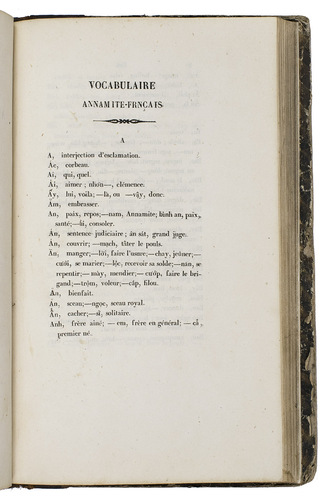 VOCABULAIRE
ANNAMITE-FRNÇAIS
A
A, interjection d'esclamation.
Ac, corbeau.
Ai, qui, quel.
Ái, aimer; nhơn—, clémence.
Ấy, lui, voila;—là, ou —vậy, donc.
Ẳm, embrasser.
An, paix, repos;—nam, Annamite; bình an, paix,
santé;—ủi, consoler.
Án, sentence judiciaire; án sát, grand juge.
Án, couvrir;—mạch, tâter le pouls.
Ăn, manger;—lời, faire l'usure;—chay, jeûner;—
cưới, se marier;—lộc, recevoir sa solde;—năn, se
repentir;—mày, mendier;—cướp, faire le bri-
gand;—trộm, voleur;—cắp, filou.
Ân, bienfait.
Ấn, sceau;—ngọc, sceau royal.
Ẩn, cacher;—sĩ, solitaire.
Anh, frère ainé;—em, frère en général;—cả,
premier né.